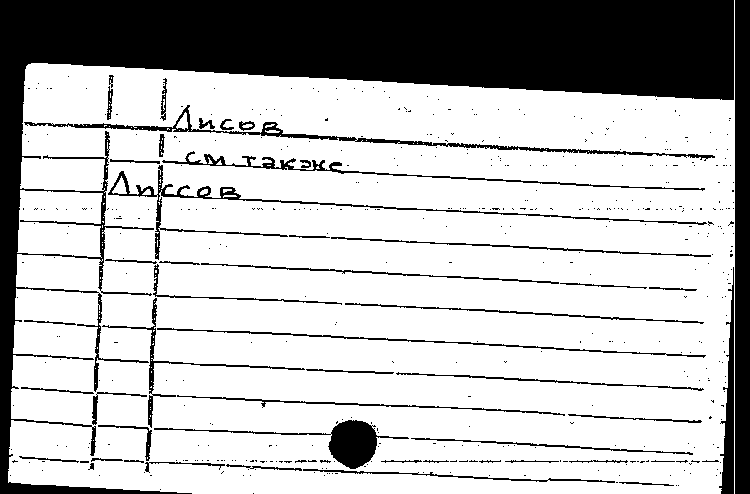 Лисов
см. также
Лиссов